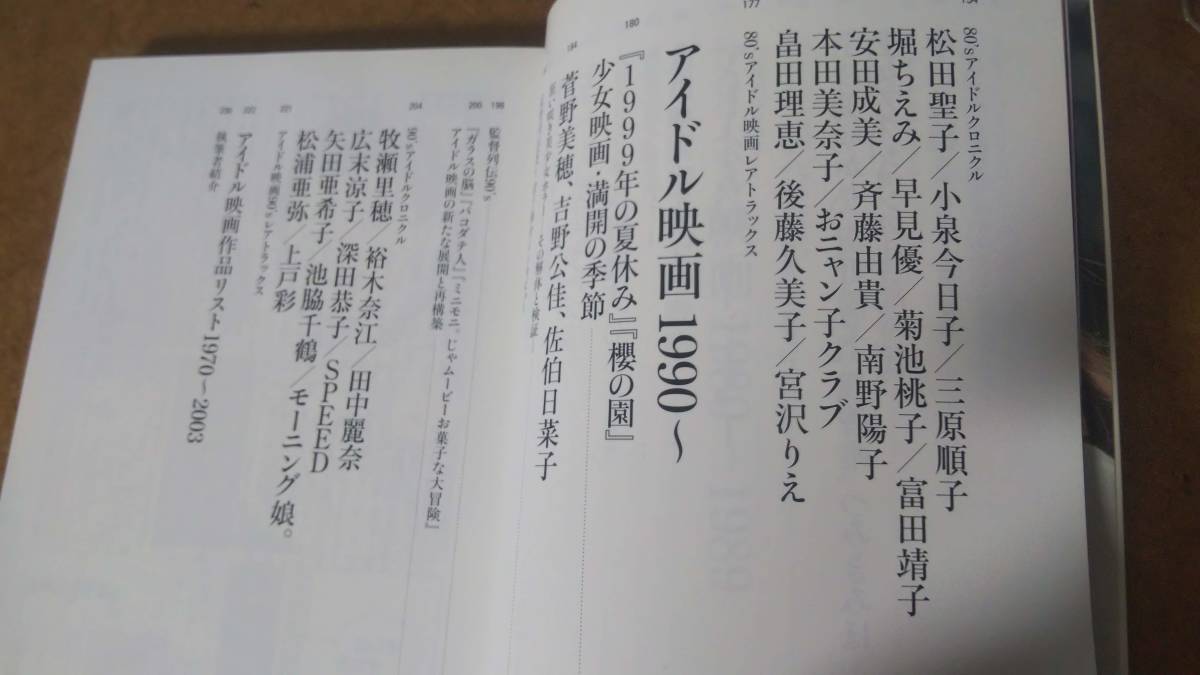 80'sアイドルクロニクル
松田聖子／小泉今日子／三原順子
堀ちえみ／早見優／菊池桃子／富田靖子
安田成美／斉藤由貴／南野陽子
本田美奈子／おニャン子クラブ
畠田理恵／後藤久美子／宮沢りえ
177
80'sアイドル映画レアトラックス
アイドル映画1990〜
180
『1999年の夏休み』『櫻の園』
少女映画・満開の季節
184
菅野美穂、吉野公佳、佐伯日菜子
198
監督列伝90's
200
『ガラスの脳』『パコダテ人』『ミニモニ。じゃムービーお菓子な大冒険』
アイドル映画の新たな展開と再構築
204
90'sアイドルクロニクル
牧瀬里穂／裕木奈江／田中麗奈
広末涼子／深田恭子／SPEED
矢田亜希子／池脇千鶴／モーニング娘。
松浦亜弥／上戸彩
221
アイドル映画90'sレアトラックス
222
アイドル映画作品リスト1970〜2003
執筆者紹介